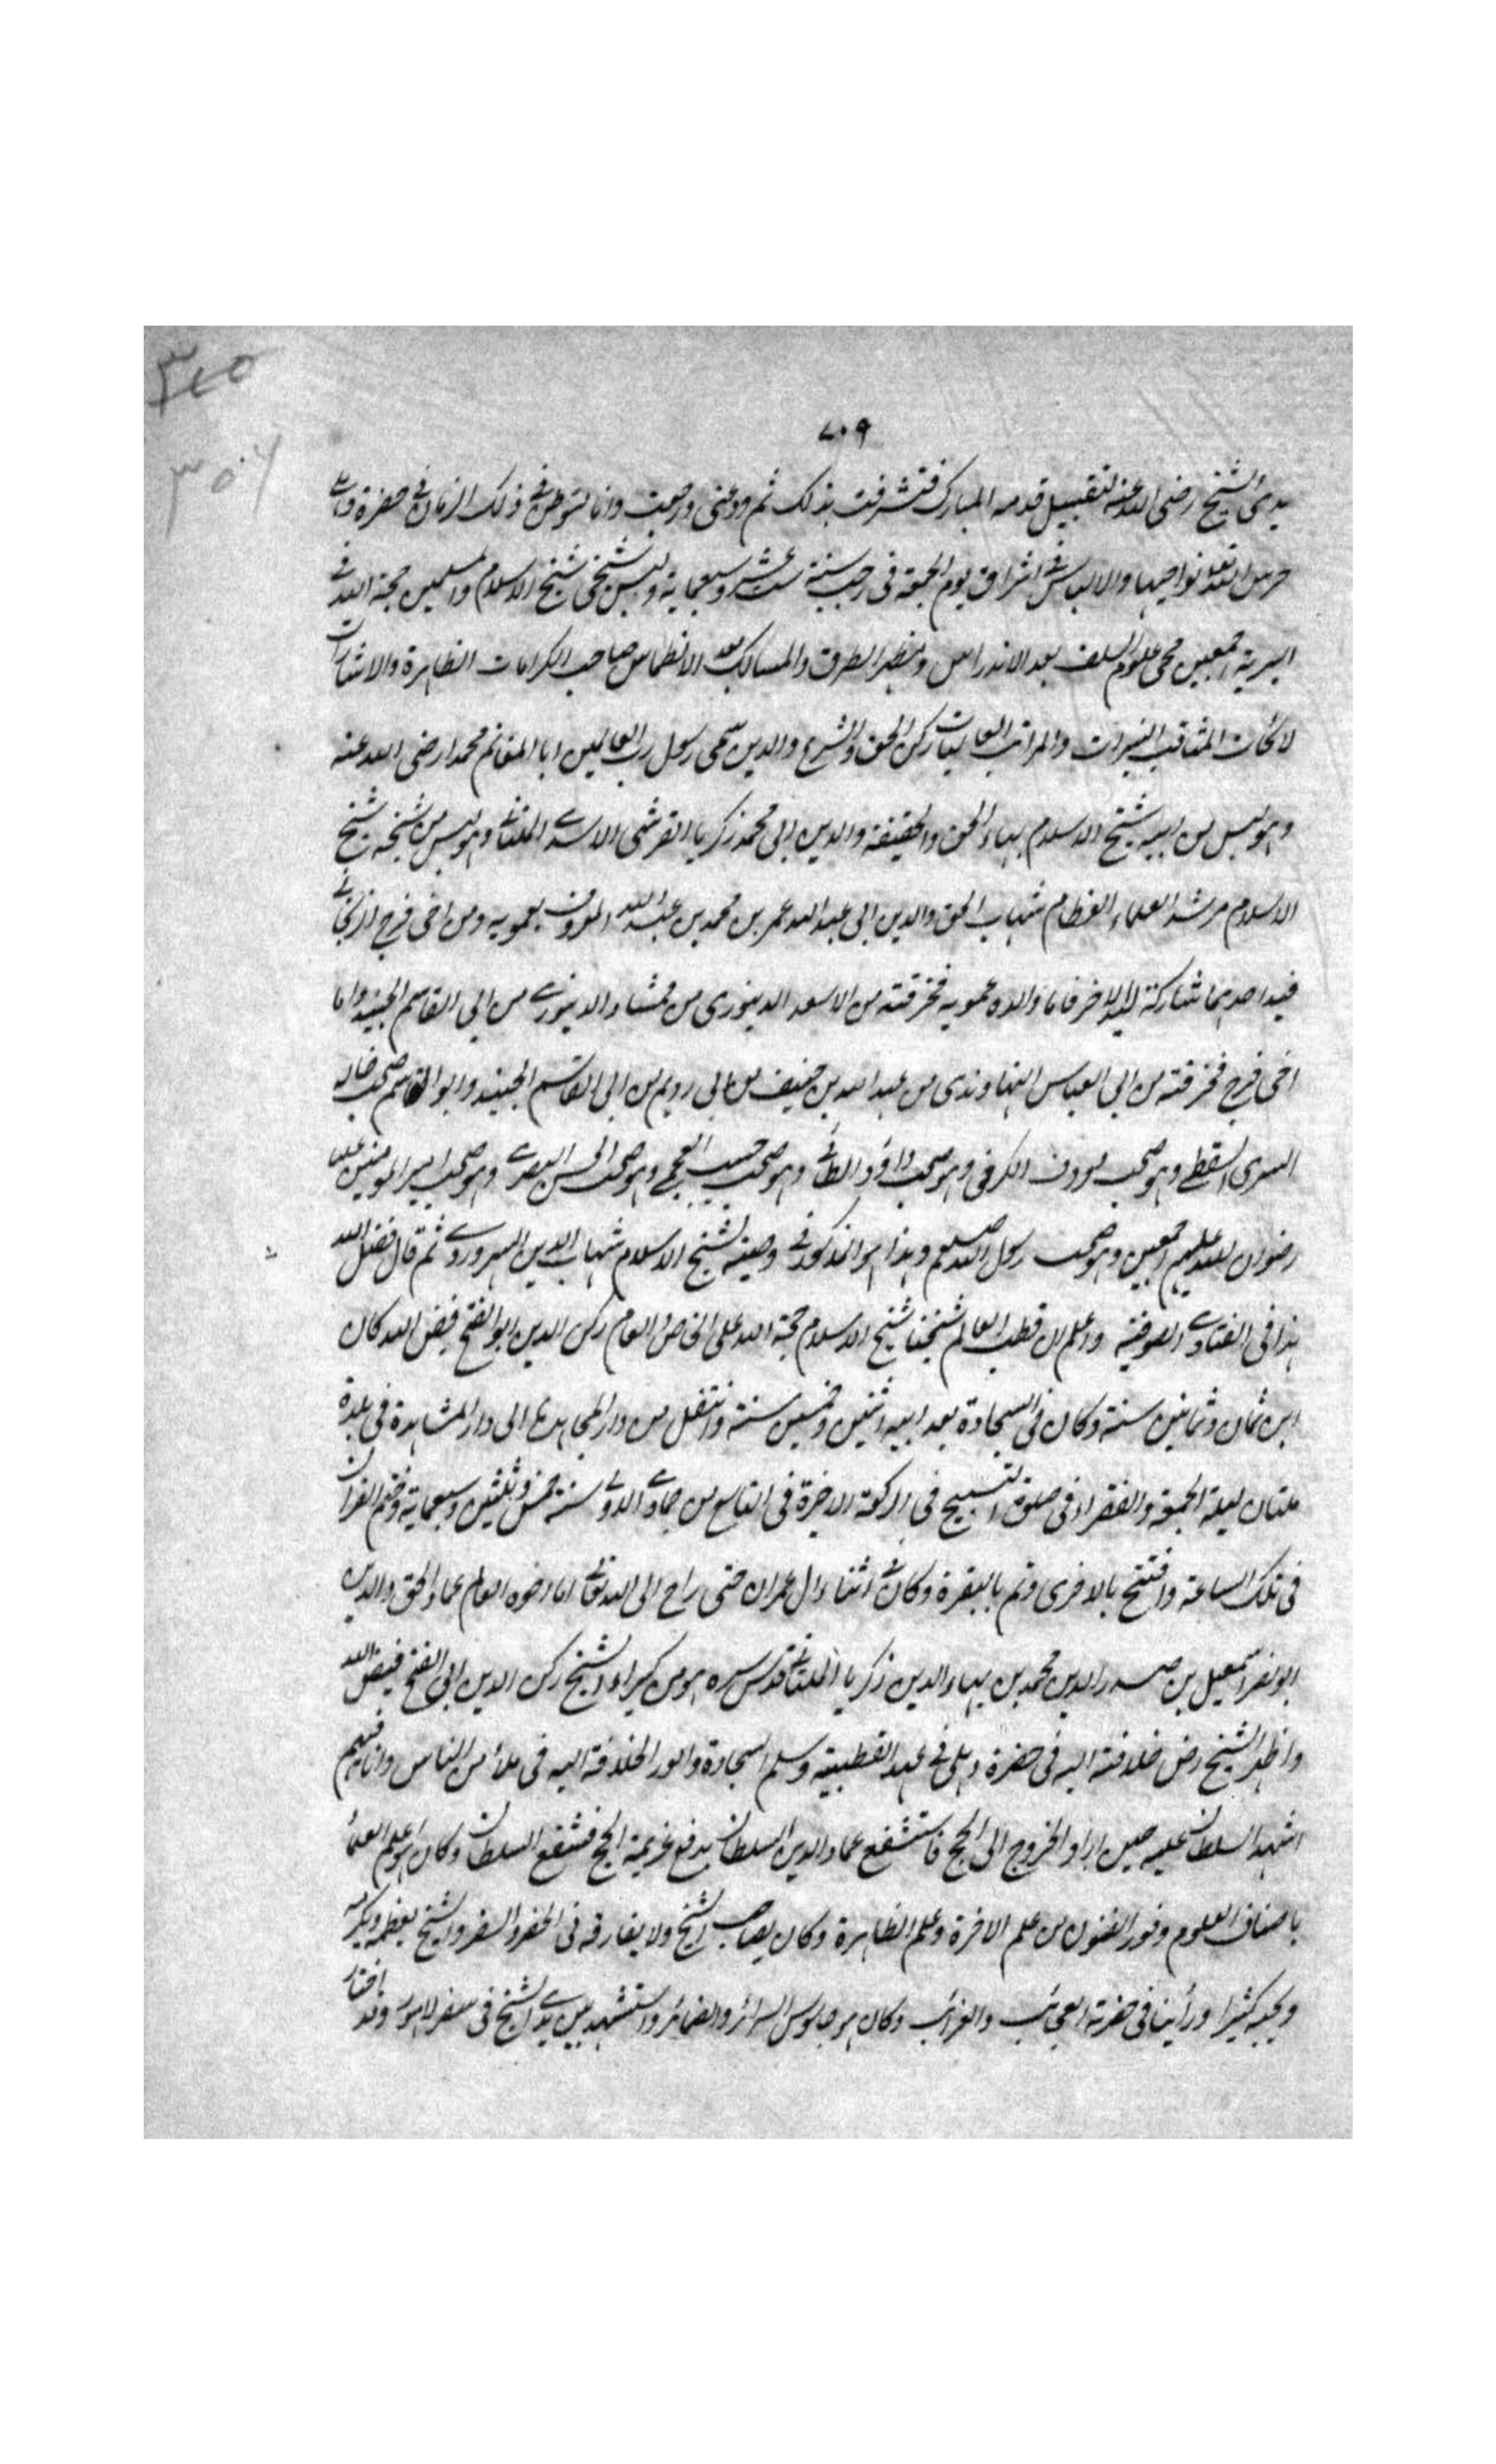 ٣٤٥
٧٠٩
٣٠٦
يدي الشيخ رضى الله عنه لتقبيل قدمه المبارك فتشرفت بذلك ثم ودعنى ورجعت وانا متوطن فى ذلك الزمان فى حضرة دهلى
حرس الله تعالى نواحيها والالباس فى اشراق يوم الجمعة فى رجب سنة ست عشر وسبعماية ولبس شيخى شيخ الاسلام والمسلمين حجة الله فى
البرية اجمعين محى علوم السلف بعد الاندراس ومظهر الطرق والمسالك بعد الانطماس صاحب الكرامات الظاهرة والاشارات
لائحات المناقب النيرات والمراتب العاليات ركن الحق والشرع والدين سمى رسول رب العالمين ابا المغانم محمدا رضى الله عنه
وهو لبس من ابيه شيخ الاسلام بهاء الحق والحقيقة والدين ابى محمد زكريا القرشى الاسدى الملتانى وهو لبس من شيخه شيخ
الاسلام مرشد العلماء العظام شهاب الحق والدين ابى عبد الله عمر بن محمد بن عبد الله المعروف بعمويه ومن اخى فرج الزنجانى
فيد احدهما شاركة ليد الاخر فاما والده عمويه فخرقته من الاسعد الدينورى من ممشاد الدينورى من ابى القاسم الجنيد واما
اخى فرج فخرقته من ابى العباس النهاوندى من عبد الله بن خفيف من ابى رويم من ابى القاسم الجنيد وابو القاسم صحب خاله
السرى السقطى وهو صحب معروف الكرخى وهو صحب داؤد الطائى وهو صحب حبيب العجمى وهو صحب الحسن البصرى وهو صحب امير المومنين عليا
رضوان الله عليهم اجمعين وهو صحب رسول الله صلعم وهذا هو المذكور فى وصية شيخ الاسلام شهاب الدين السهروردى ثم قال فضل الله
هذا فى الفتاوى الصوفية واعلم ان قطب العالم شيخنا شيخ الاسلام حجة الله على الخاص والعام ركن الدين ابو الفتح فيض الله كان
ابن ثمان وثمانين سنة وكان فى السجادة بعد ابيه اثنين وخمسين سنة وانتقل من دار المجاهدة الى دار المشاهدة فى بلدة
ملتان ليلة الجمعة والفقراء فى صلوة التسبيح فى الركعة الاخرة فى التاسع من جمادى الاولى سنة خمس وثلثين وسبعماية وختم القران
فى تلك الساعة وافتتح بالاخرى وتم بالبقرة وكان فى اثناء ال عمران حتى راح الى الله تعالى اما اخوه العالم عماد الحق والدين
ابو نصر اسمعيل بن صدر الدين محمد بن بهاء الدين زكريا الملتانى قدس سره هو من كبراء الشيخ ركن الدين ابى الفتح فيض الله
واظهر الشيخ رض خلافته اليه فى حضرة دهلى فى عهد القطبية وسلم السجادة وامور الخلافة اليه فى ملأ من الناس وانا فيهم
اشهد السلطان عليه حين اراد الخروج الى الحج فاستشفع عماد الدين السلطان بدفع عزيمة الحج فشفع السلطان وكان هو اعلم العلماء
باصناف العلوم وفور الفنون من علم الاخرة وعلم الظاهرة وكان يصاحب الشيخ ولا يفارقه فى الحضر والسفر والشيخ يعظمه ويكرمه
ويحبه كثيرا ورأينا فى حضرته العجائب والغرائب وكان هو جاسوس السرائر والضمائر واستشهد بين يدى الشيخ فى سفر لاهور وقد اختار